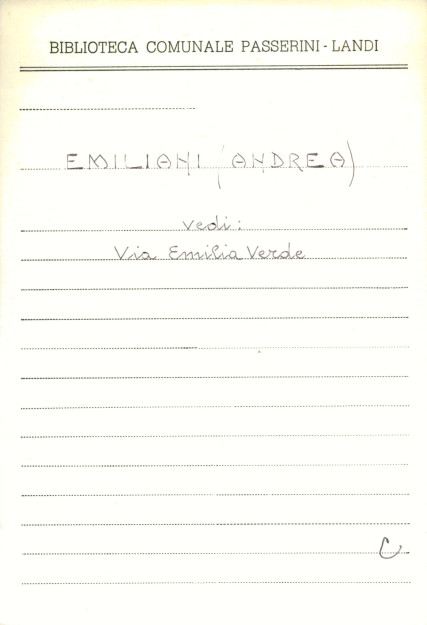 BIBLIOTECA COMUNALE PASSERINI - LANDI
EMILIANI (ANDREA)
vedi:
Via Emilia Verde
C